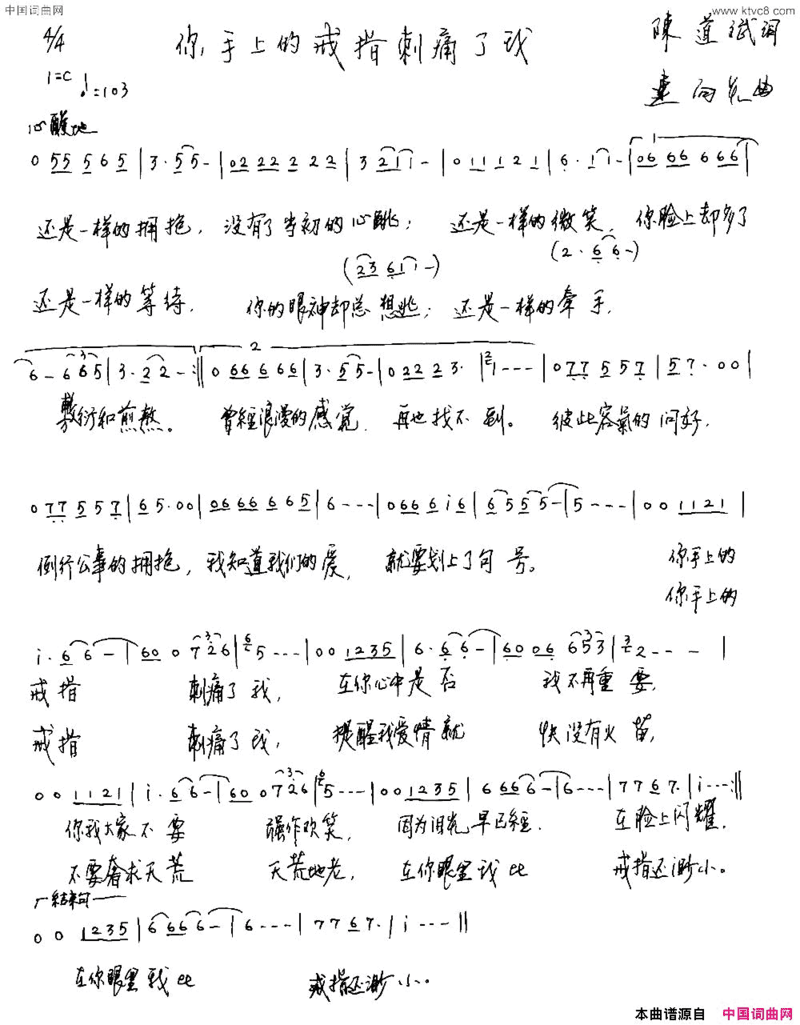 中国词曲网
www.ktvc8.com
4/4 你手上的戒指刺痛了我 陳道斌詞
1=C ♩=103 曲
心酸地
0 55 5 6 5 | 3· 55 - | 02 22 2 22 | 3 211 - | 0 11 1 2 1 | 6· 11 - | 06 66 6 666 |
还是一样的拥抱，没有了当初的心跳；还是一样的微笑，你脸上却多了
(23 611 -) (2· 66 -)
还是一样的等待，你的眼神却总想逃；还是一样的牵手，
6 - 6 665 | 3· 22 - :|| 0 66 66 6 | 3· 55 - | 0 22 2 3· | 1 - - - | 0 77 5 5 7 | 5 7· 0 0 |
敷衍和煎熬。曾經浪漫的感覚，再也找不到。彼此客氣的问好，
0 77 5 5 7 | 6 5· 0 0 | 06 66 6 6 5 | 6 - - - | 0 66 6 i 6 | 6 5 5 5 - | 5 - - - | 0 0 1121 |
例行公事的拥抱，我知道我们的爱，就要划上了句号。 你手上的
你手上的
i· 6 6 - | 60 0 726 | 5 - - - | 0 0 1235 | 6· 6 6 - | 60 06 653 | 2 - - - |
戒指 刺痛了我，在你心中是否 我不再重要，
戒指 刺痛了我，提醒我爱情就 快没有火苗，
0 0 1121 | i· 6 6 - | 60 0 726 | 5 - - - | 0 0 1235 | 6 66 6 - | 6 - - - | 7 7 6 7· | i - - - :||
你我大家不要 强作欢笑，因为泪光早已經 在脸上闪耀，
不要奢求天荒 天荒地老，在你眼里我比 戒指还渺小。
结束句
0 0 1235 | 6 66 6 - | 6 - - - | 7 7 6 7· | i - - - ||
在你眼里我比 戒指还渺小。
本曲谱源自 中国词曲网